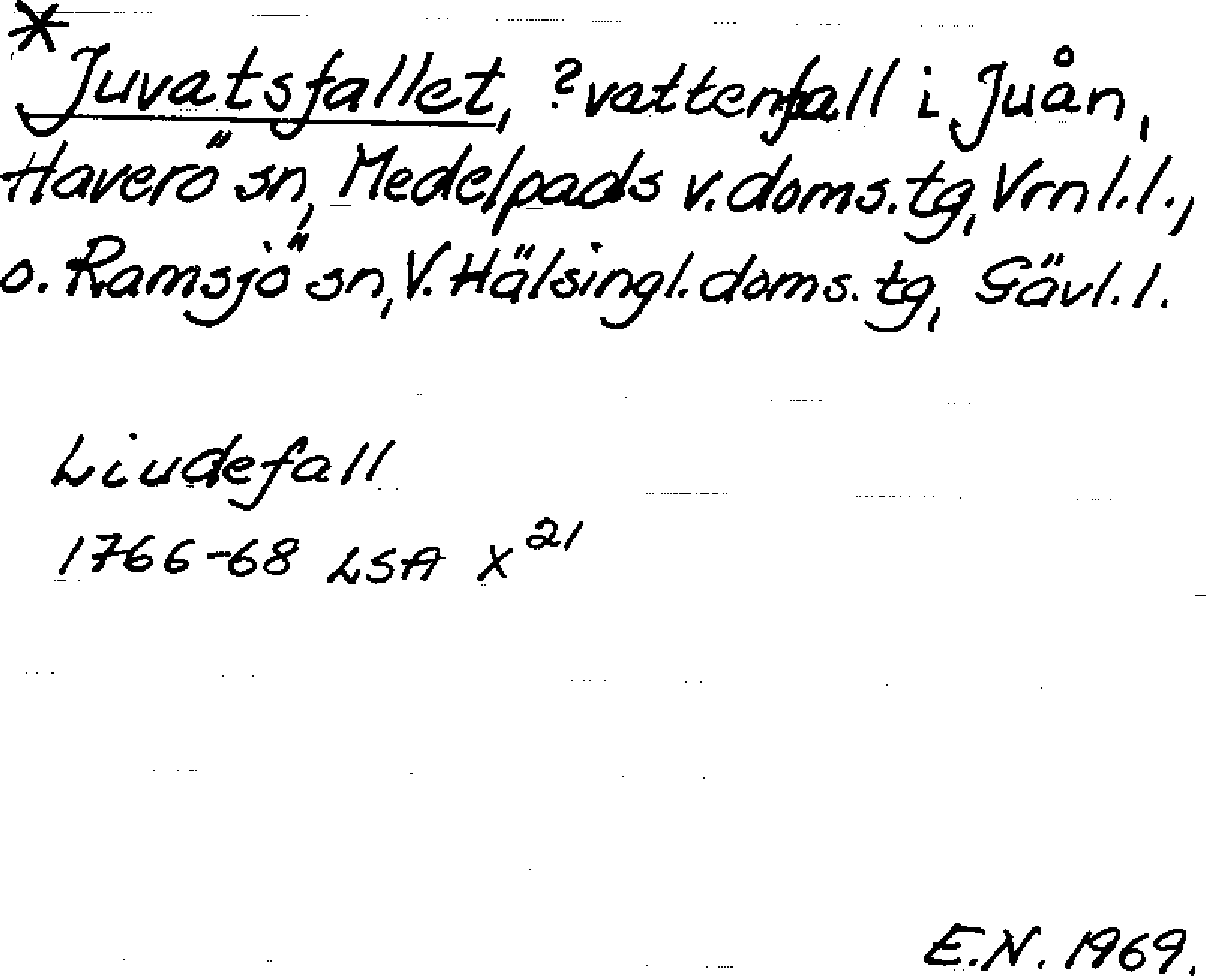 *Juvatsfallet, ?vattenfall i Juån,
Haverö sn, Medelpads v. doms. tg, Vrnl. l.,
o. Ramsjö sn, V. Hälsingl. doms. tg, Gävl. l.
Liudefall
1766-68 LSA X²¹
E.N. 1969.